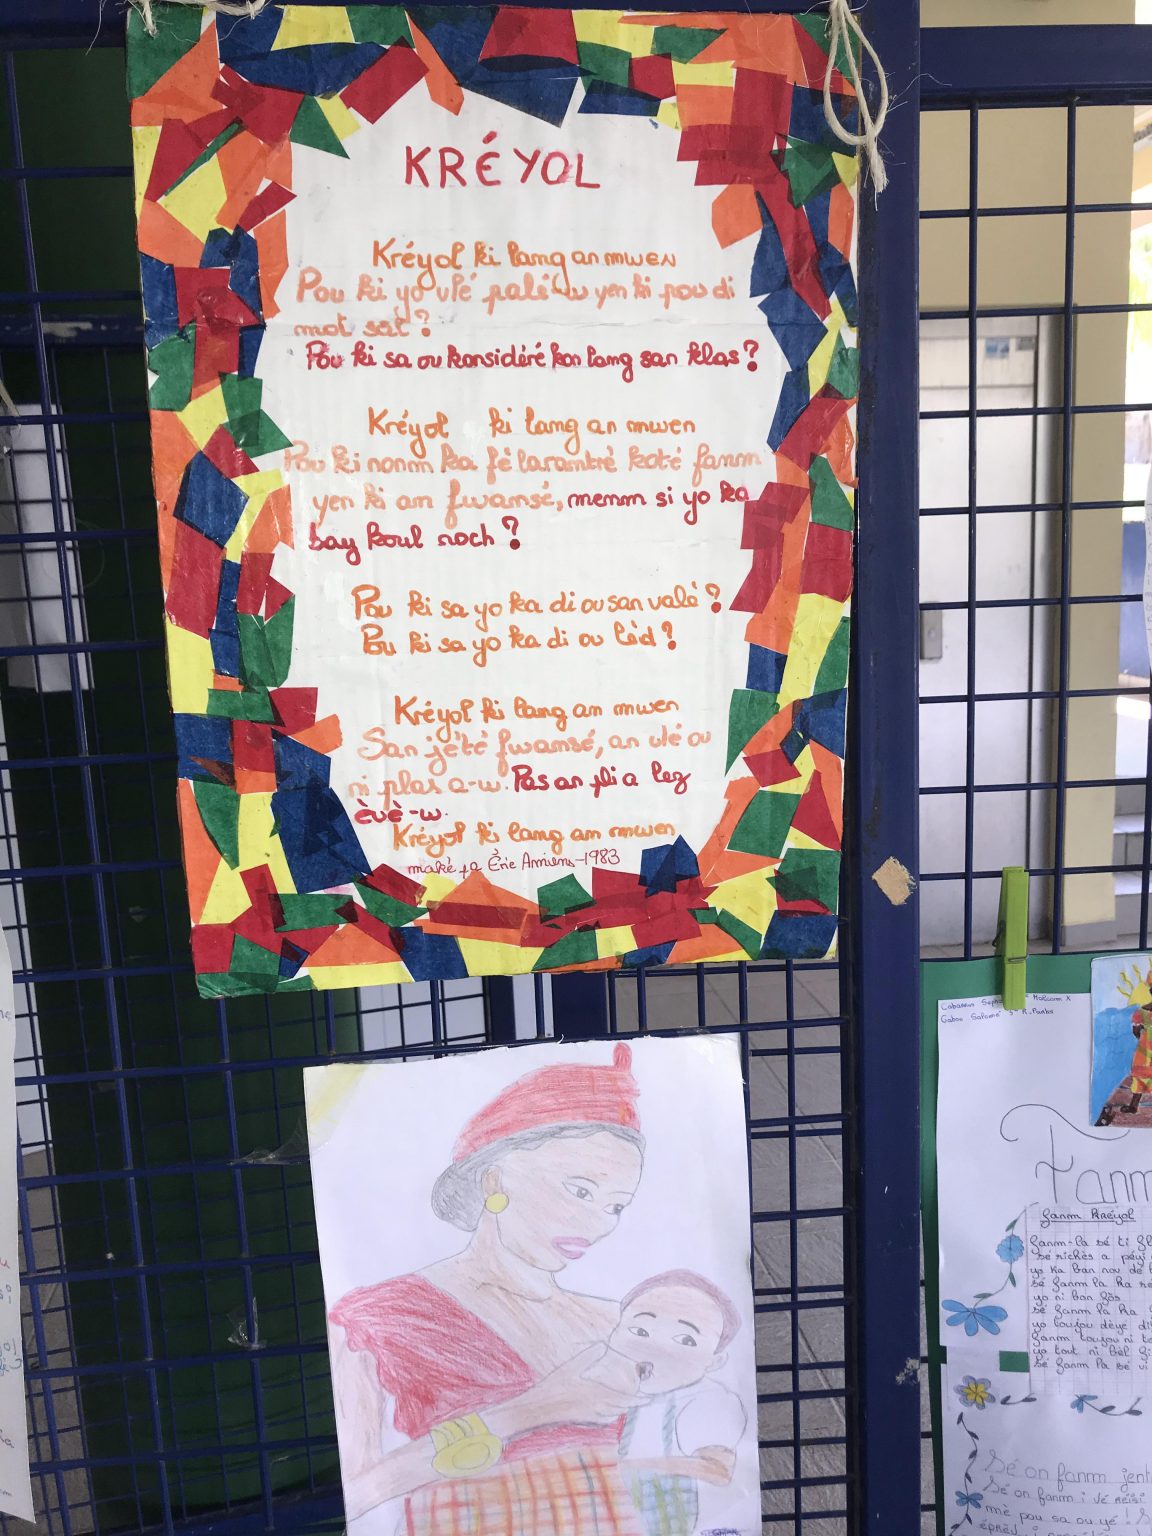 KRÉYOL
Kréyol ki lang an mwen
Pou ki yo vlé palé-w yen ki pou di
mot sal ?
Pou ki sa ou konsidéré kon lang san klas ?
Kréyol ki lang an mwen
Pou ki nonm ka fè laramtré koté fanm
yen ki an fwansé, menm si yo ka
bay koul roch ?
Pou ki sa yo ka di ou san valè ?
Pou ki sa yo ka di ou lèd ?
Kréyol ki lang an mwen
San jété fwansé, an vlé ou
ni plas a-w. Pas an pli a lez
èvè-w.
Kréyol ki lang an mwen
maké pa Éric Amiens-1983
Malcom X
Gabou Salomé 3e R. Parks
Fanm
fanm kréyol
fanm-la sé ti
sé richès a péyi
yo ka ban nou dè
sé fanm la ka
yo ni bon
sé fanm la ka
yo toujou dèyè
fanm toujou ni
yo tout ni bèl
sé fanm la sé
Sé on fanm
Sé on fanm i vé
mè pou sa ou yé !